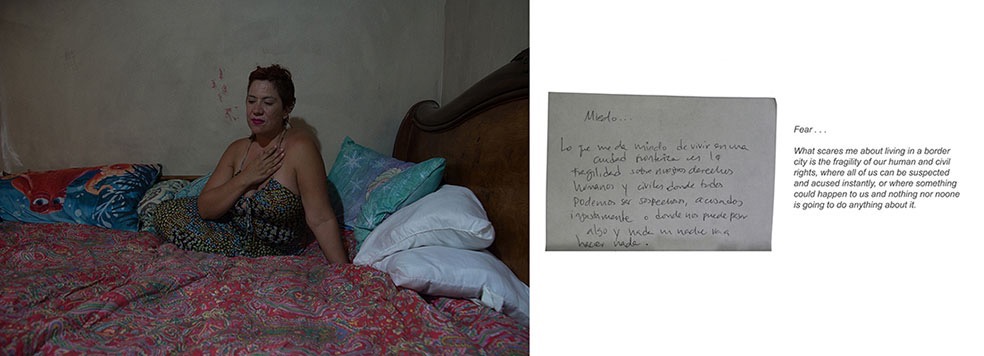 Miedo...
Lo que me da miedo de vivir en una
ciudad fronteriza es la
fragilidad sobre nuestros derechos
humanos y civiles donde todos
podemos ser sospechosos, acusados
injustamente o donde nos puede pasar
algo y nada ni nadie va a
hacer nada.
Fear . . .
What scares me about living in a border
city is the fragility of our human and civil
rights, where all of us can be suspected
and acused instantly, or where something
could happen to us and nothing nor noone
is going to do anything about it.